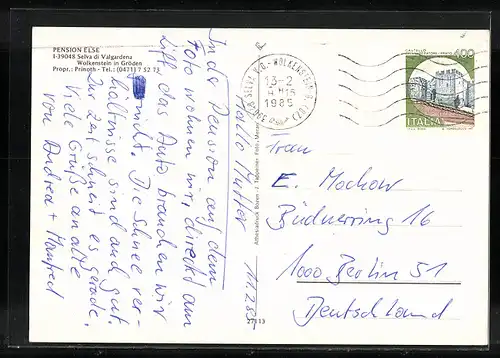 PENSION ELSE
I-39048 Selva di Valgardena
Wolkenstein in Gröden
Propr.: Prinoth - Tel.: (0471) 7 52 73
Hallo Mutter 11.2.85
In der Pension auf dem
Foto wohnen wir, direkt am
Lift das Auto brauchen wir
nicht. Die Schneever-
hältnisse sind auch gut.
Zur Zeit schneit es gerade.
Viele Grüße an alle
von Andrea + Manfred
Athesiadruck Bozen - J. Tappeiner Foto, Meran
27113
SELVA V.G. - WOLKENSTEIN G.
13-2
1985
400
CASTELLO
ITALIA
Frau
E. Mochow
Büdnerring 16
1000 Berlin 51
Deutschland